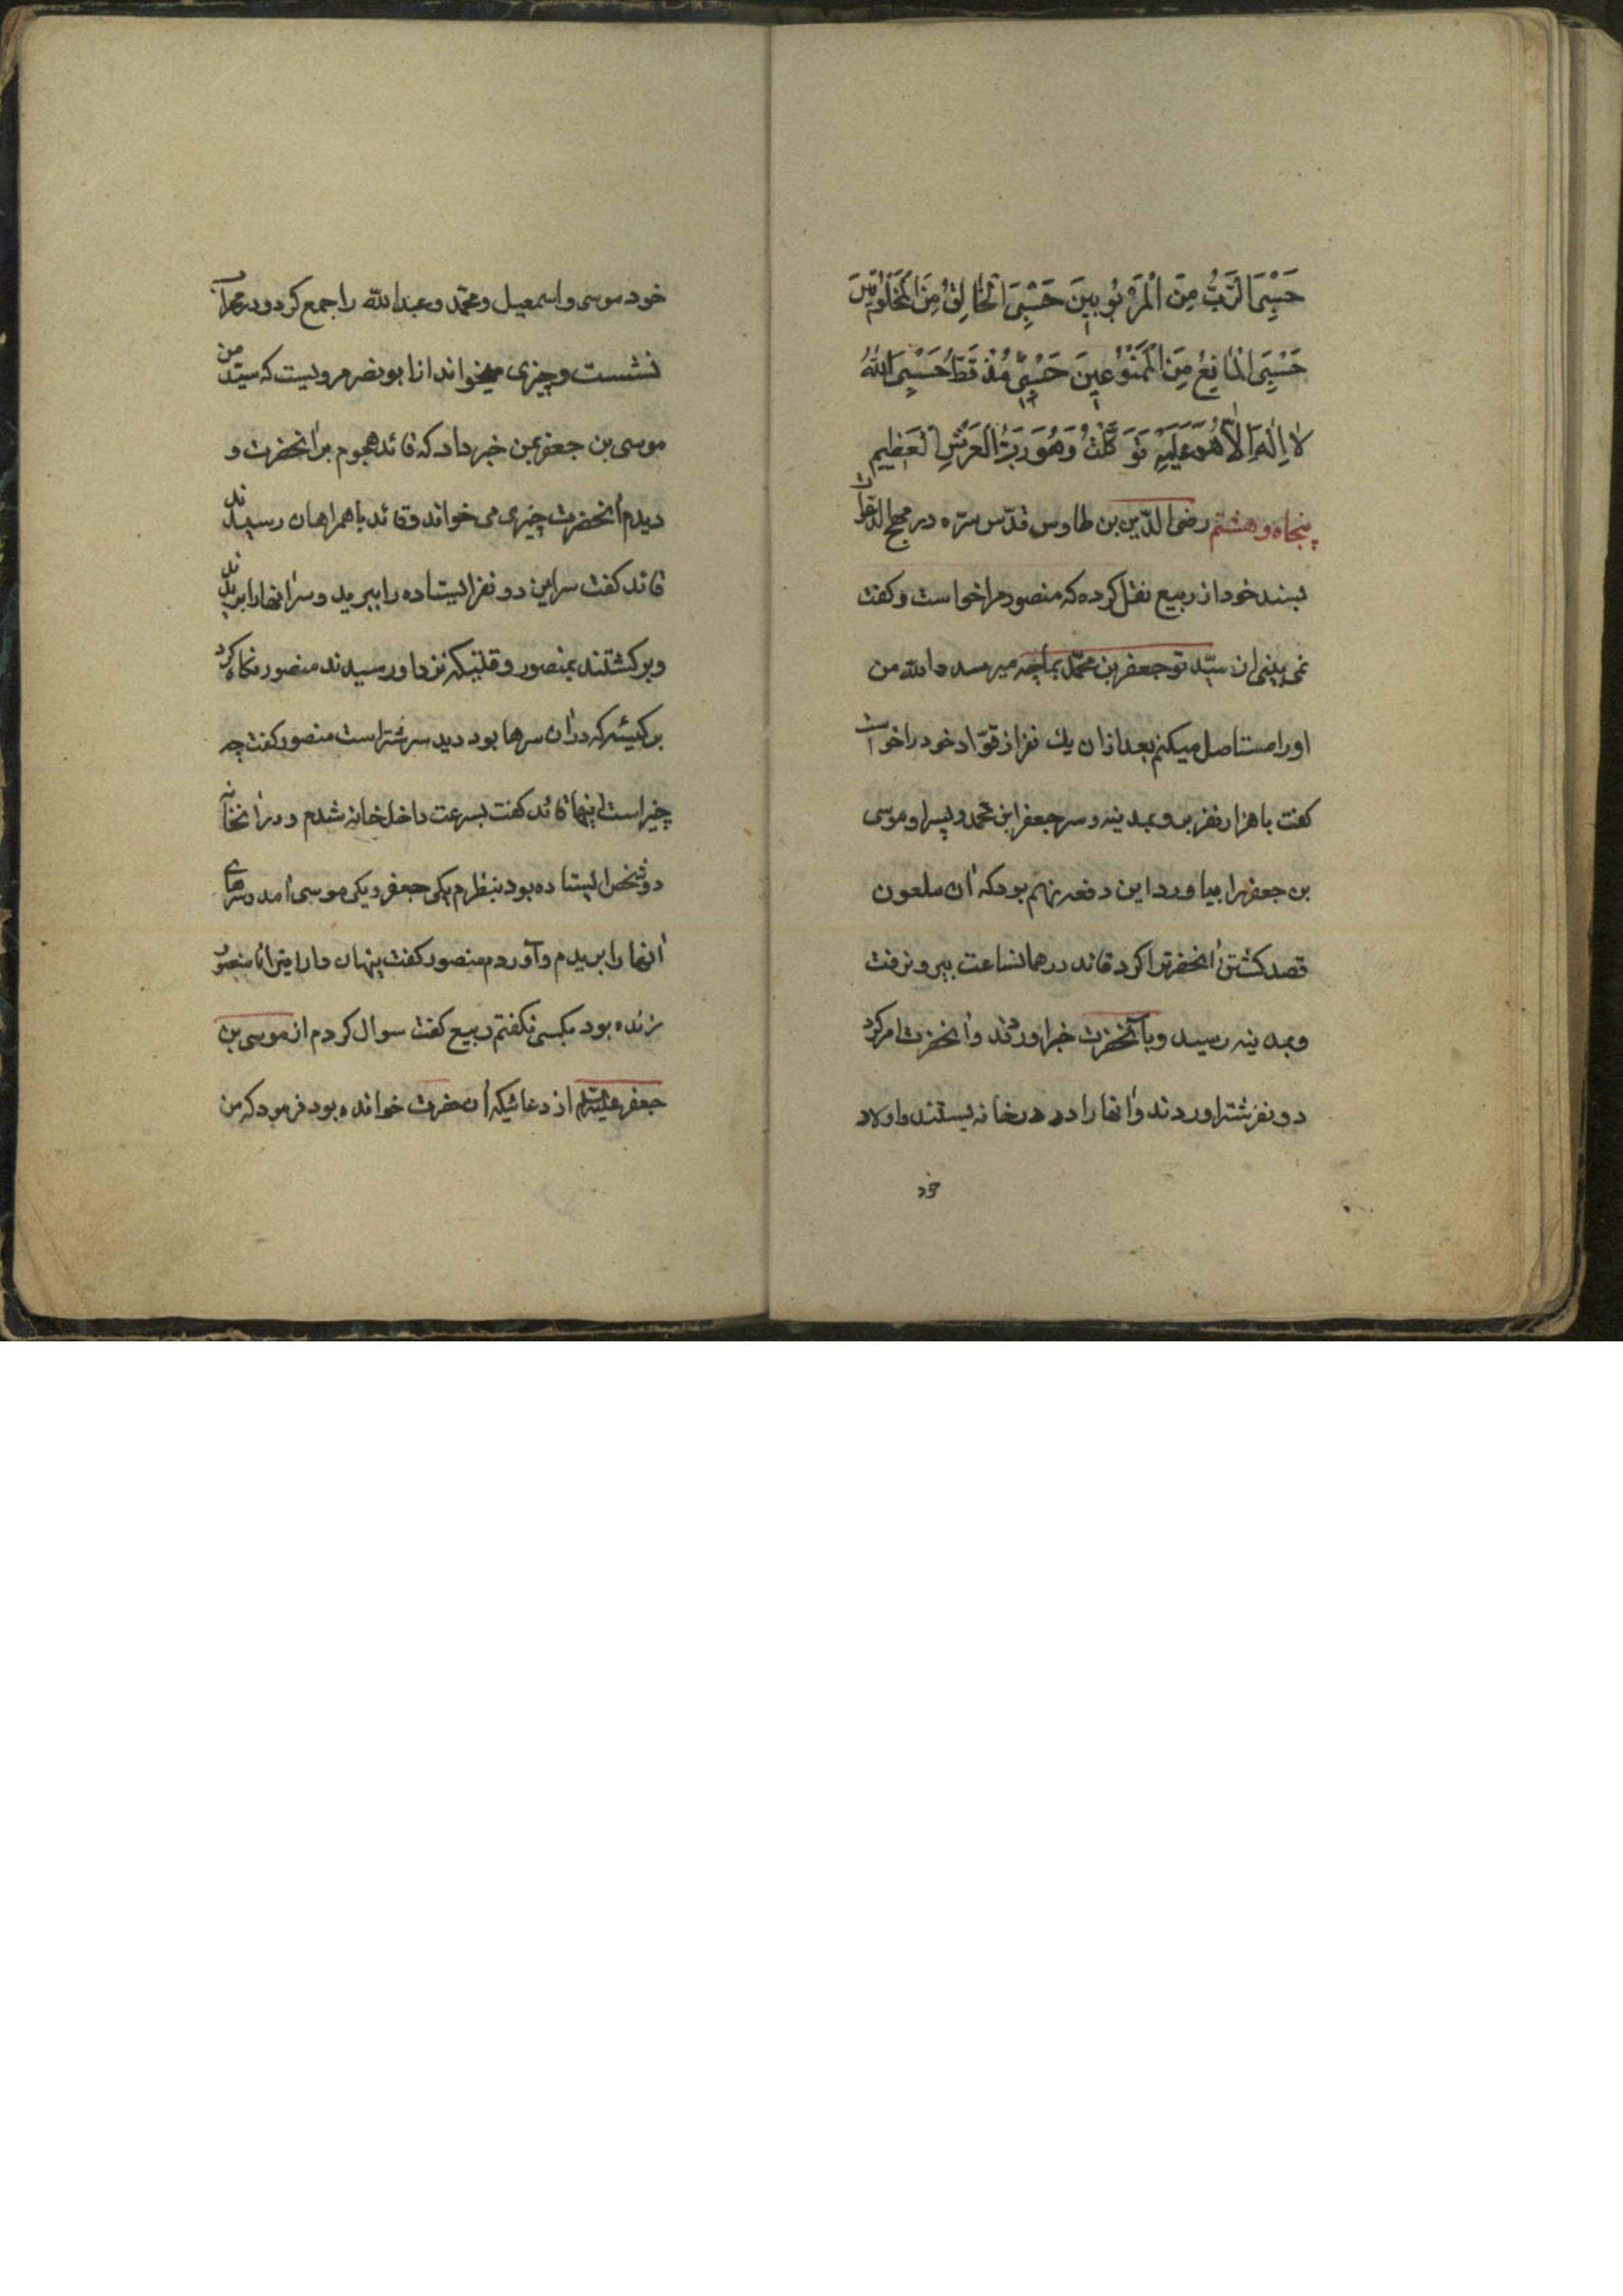 حَسْبِيَ الرَّبُّ مِنَ الْمَرْبُوبِينَ حَسْبِيَ الْخَالِقُ مِنَ الْمَخْلُوقِينَ
حَسْبِيَ الْمَانِعُ مِنَ الْمَمْنُوعِينَ حَسْبِي مُذْ قَطُّ حَسْبِيَ اللهُ
لا اِلٰهَ اِلاّ هُوَ عَلَيْهِ تَوَكَّلْتُ وَهُوَ رَبُّ الْعَرْشِ الْعَظِيمِ
پنجاه و هشتم رضی الدّین بن طاوس قدّس سرّه در مهج الدعوات
بسند خود از ربیع نقل کرده که منصور مرا خواست و کفت
نمی بینی از سیّد تو جعفر بن محمّد بما چه میرسد والله من
اورا مستاصل میکنم بعد از ان یك نفر از قوّاد خود را خواست
کفت با هزار نفر برو بمدینه و سر جعفر ابن محمد و پسر او موسی
بن جعفر را بیاور و این دفعه نهم بود که آن ملعون
قصد کشتن آنحضرترا کرد قائد در همانساعت بیرون رفت
و بمدینه رسید و بآنحضرت خبر اوردند و آنحضرت امر کرد
دو نفر شتر اوردند و آنها را در در خانه بستند و اولاد
خود
خود موسی و اسمعیل و محمّد و عبدالله را جمع کرد و در محراب
نشست و چیزی میخواند از ابو نصر مرویست که سیّد من
موسی بن جعفر بمن خبر داد که قائد هجوم بر آنحضرت و
دیدم آنحضرت چیزی می خواند و قائد با همراهان رسیدند
قائد کفت سر این دو نفر ایستاده را ببرید و سر آنها را بریدند
و برکشتند بمنصور وقتیکه نزد او رسیدند منصور نکاه کرد
بر کیسه که در آن سرها بود دید سر شتر است منصور کفت چه
چیز است اینها قائد کفت بسرعت داخل خانه شدم و در آنخانه
دو شخص ایستاده بود بنظرم یکی جعفر و یکی موسی آمد و سرهای
آنها را بریدم و آوردم منصور کفت پنهان دار این را تا منصور
زنده بود بکسی نکفتم ربیع کفت سوال کردم از موسی بن
جعفر علیه السلام از دعائیکه آن حضرت خوانده بود فرمود که من